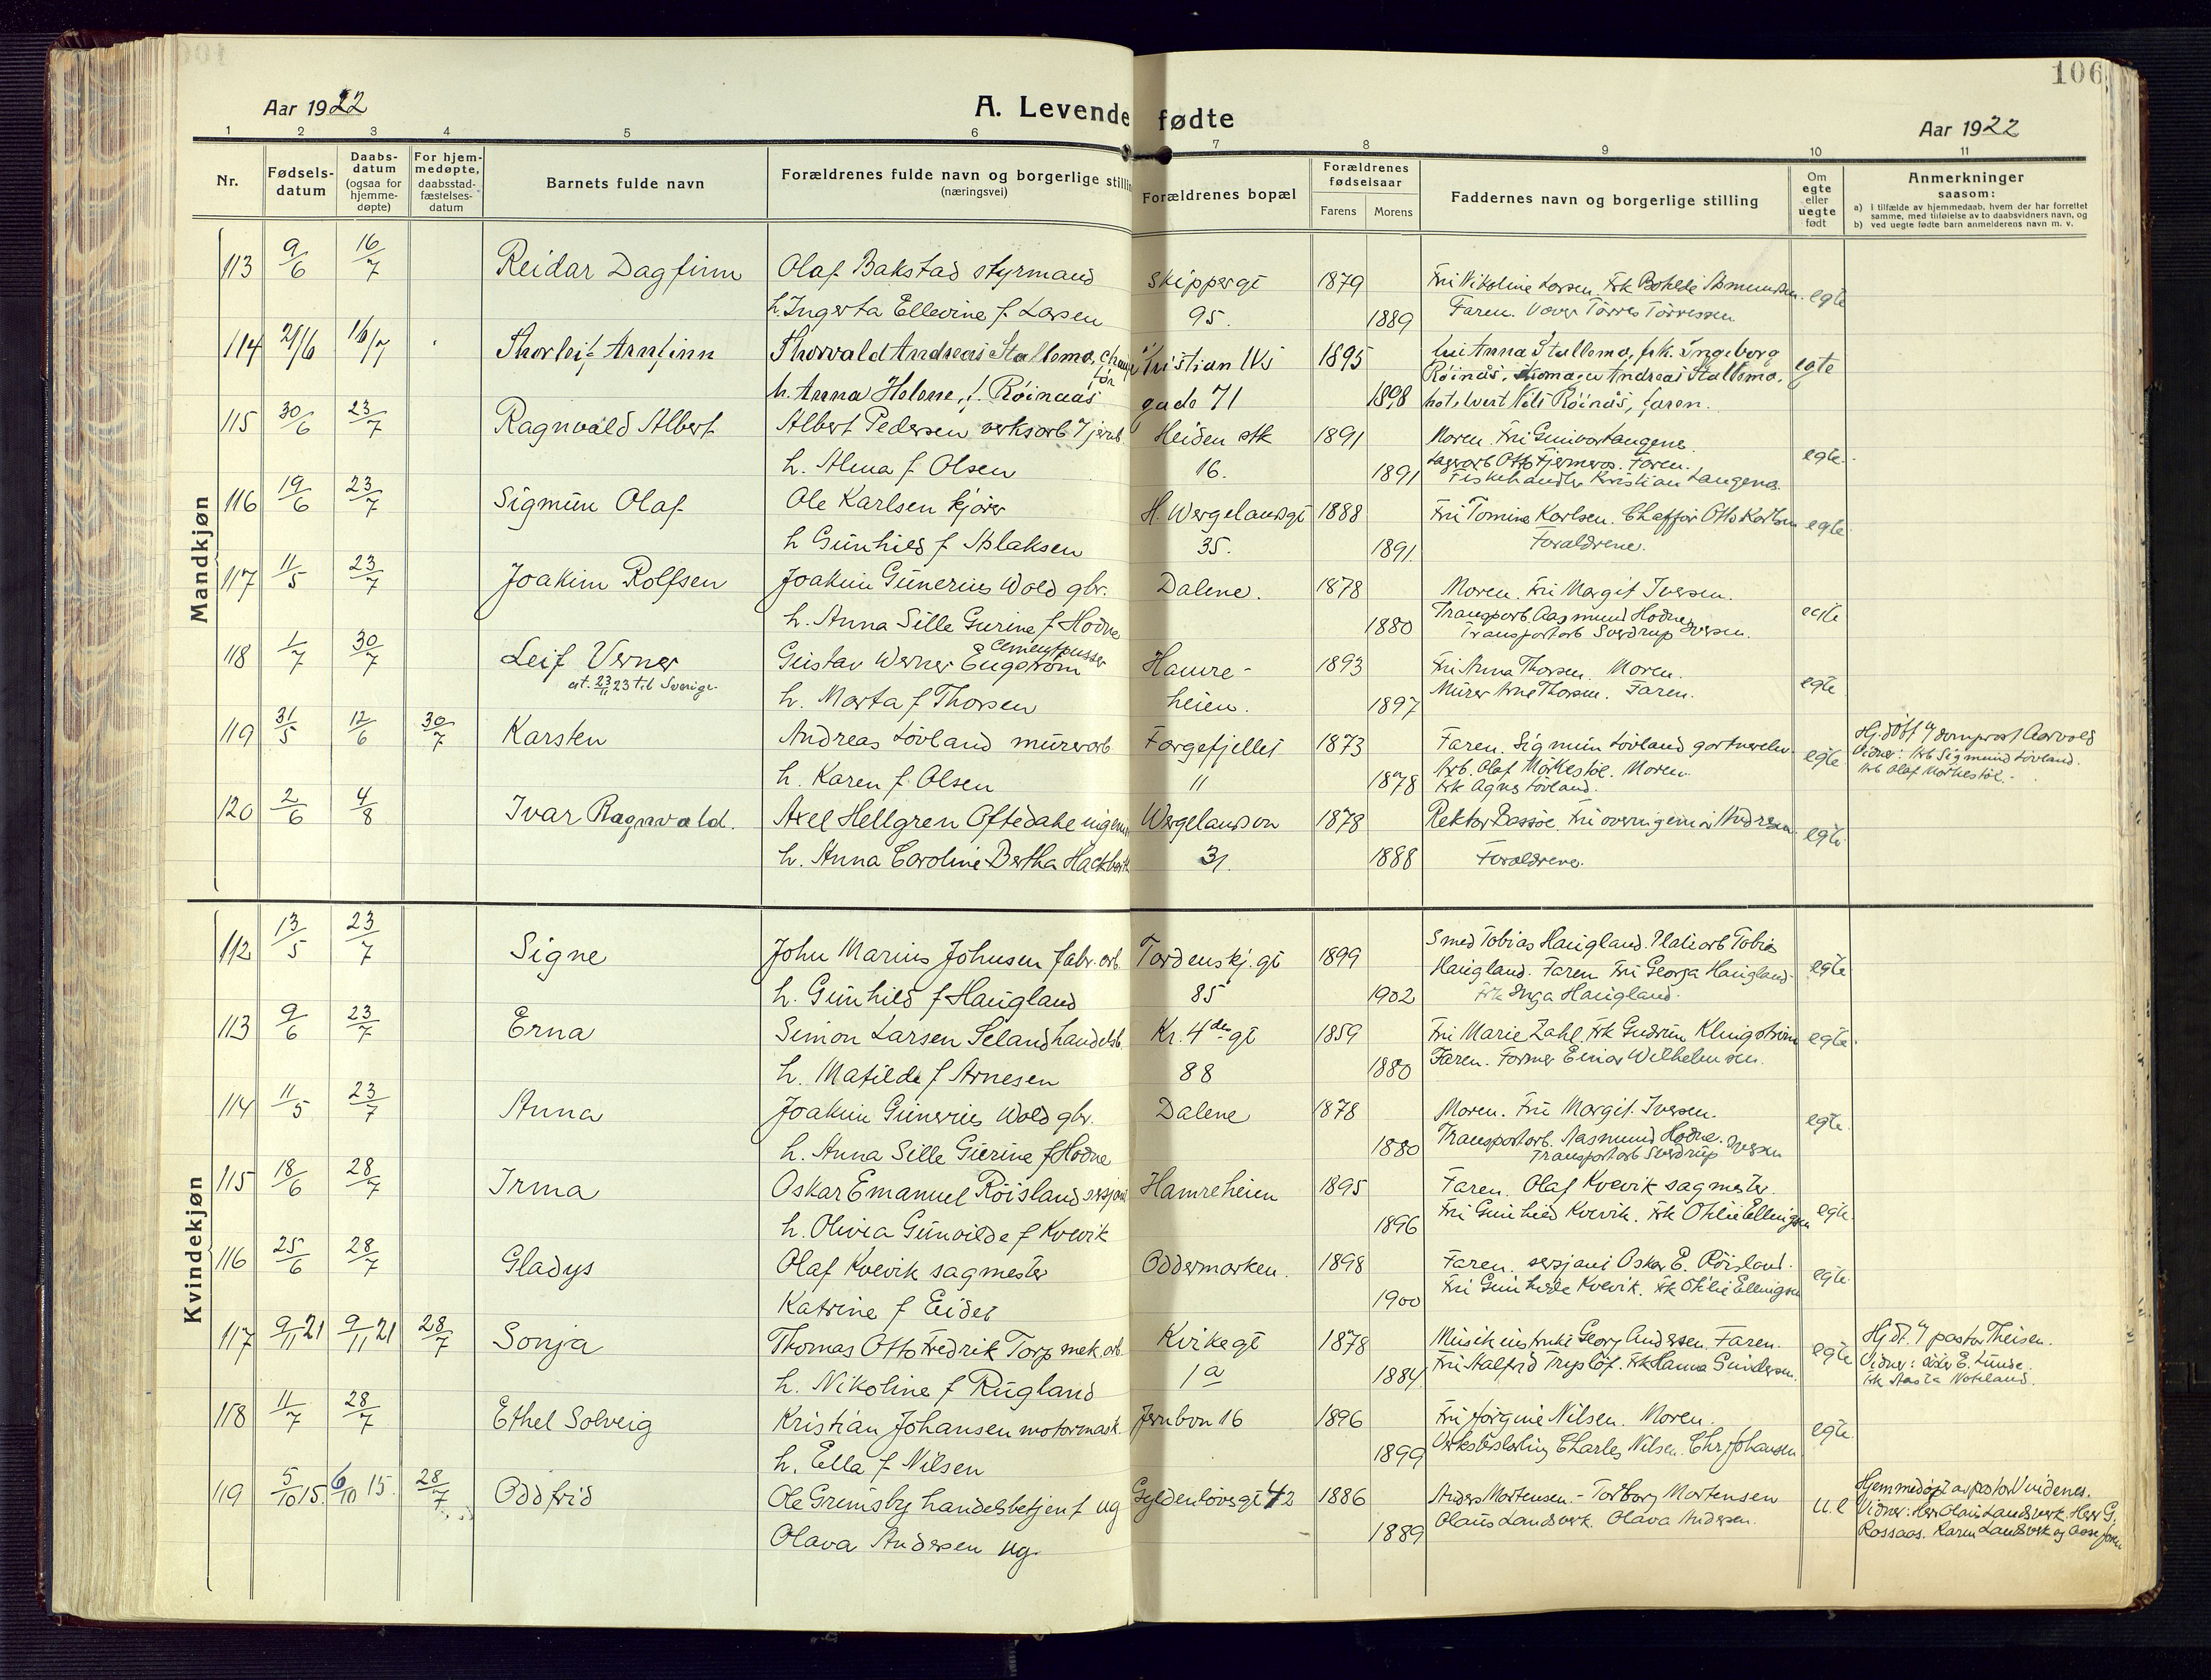 106
Aar 1922
A. Levende fødte
Aar 1922
1 2 3 4 5 6 7 8 9 10 11
Nr.
Fødsels-
datum
Daabs-
datum
(ogsaa for
hjemme-
døpte)
For hjem-
medøpte,
daabsstad-
fæstelses-
datum
Barnets fulde navn
Forældrenes fulde navn og borgerlige stilling
(næringsvei)
Forældrenes bopæl
Forældrenes
fødselsaar
Farens
Morens
Faddernes navn og borgerlige stilling
Om
egte
eller
uegte
født
Anmerkninger
saasom:
a) i tilfælde av hjemmedaab, hvem der har forrettet
samme, med tilføielse av to daabsvidners navn, og
b) ved uegte fødte barn anmelderens navn m. v.
Mandkjøn
113 9/6 16/7 Reidar Dagfinn Olaf Bakstad styrmand Skippergt 1879 Fru Nikoline Larsen. Frk Bohlde Asmundsen. egte
h. Ingerta Ellevine f Larsen 95. 1889 Faren. Tørres Tørressen
114 21/6 16/7 Thorleif Arnfinn Thorvald Andreas Stallemo, chauffør Kristian IVs 1895 Fru Anna Stallemo, frk. Ingeborg egte
Röinås, skomager Andreas Stallemo,
h. Anna Helene, f. Röinaas gade 71 1898 hotelvert Nils Röinås, faren.
115 30/6 23/7 Ragnvald Albert Albert Pedersen verksarb v/ jernb. Heiden stk 1891 Moren. Fru Langene. egte.
Lagerarb Otto Fjermeros. Faren.
h. Alma f Olsen 16. 1891 Fiskehandler Kristian Langenes
116 19/6 23/7 Sigmun Olaf Ole Karlsen kjører H. Wergelandsgt 1888 Fru Tomine Karlsen. Chaffør Otto Karlsen egte
h Gunhild f Aslaksen 35. 1891. Forældrene.
117 11/5 23/7 Joakim Rolfsen Joakim Gunerius Wold gbr. Dalene. 1878 Moren. Fru Margit Iversen. egte
Transportarb. Aasmund Hodne
h. Anna Sille Gurine f Hodne 1880 Transportarb Sverdrup Iversen.
118 1/7 30/7 Leif Verner Gustav Werner Engström Cementpusser Hamre- 1893 Fru Anna Thorsen. Moren. egte
ut. 23/11 23 til Sverige.
h. Marta f Thorsen heien. 1897 Murer Arne Thorsen. Faren.
119 31/5 12/6 30/7 Karsten Andreas Lövland murerarb Fargefjellet 1873 Faren. Sigmun Lövland gartnerelev. egte Hj. döbt v/ domprost Aarvold
Arb. Olaf Mörkestöl. Moren. Vidner: Arb Sigmund Lövland.
h. Karen f. Olsen 11 1878 Frk Agnes Lövland. Arb Olaf Mörkestöl.
120 2/6 4/8 Ivar Ragnvald. Axel Hellgren Oftedahl ingeniør Wergelandsvn 1878 Rektor Bassøe. Fru overingeniør Andresen egte
h. Anna Caroline Bertha Hackbarth 31. 1888 Forældrene.
Kvindekjøn
112 13/5 23/7 Signe John Marius Johnsen fabr. arb. Tordenskj. gt 1899 Smed Tobias Haugland. Platearb Tobias egte
Haugland. Faren Fru Georga Haugland.
h. Gunhild f Haugland 85 1902 Frk Inga Haugland.
113 9/6 23/7 Erna Simon Larsen Seland handelsb. Kr. 4des gt 1859 Fru Marie Zahl. Frk Gudrun Klingström egte
h. Matilde f Arnesen 88 1880 Faren. Former Einar Wilhelmsen.
114 11/5 23/7 Anna Joakim Gunerius Wold gbr. Dalene 1878 Moren. Fru Margit. Iversen. egte.
Transportarb. Aasmund Hodne.
h. Anna Sille Gurine f Hodne 1880 Transportarb Sverdrup Iversen
115 18/6 28/7 Irma Oskar Emanuel Röisland sersjant Hamreheien 1895 Faren. Olaf Kvevik sagmester. egte.
h. Olivia Gunvilde f Kvevik 1896 Fru Gunhild Kvevik. Frk Othlie Ellingsen
116 25/6 28/7 Gladys Olaf Kvevik sagmester Oddermarken. 1898 Faren. sersjant Oskar E. Röisland. egte.
Katrine f Eidet 1900 Fru Gunhilde Kvevik. Frk Othlie Ellingsen
117 9/11 21 9/11 21 28/7 Sonja Thomas Otto Fredrik Torp mek. arb. Kvikegt 1878 Musikinstruktør Georg Andersen. Faren. egte Hj. dt. v/ pastor Theisen.
h. Nikoline f Rugland 1a 1884 Fru Halfrid Trysløf. Frk Hanna Gundersen. Vidner: søster E. Lunde.
Frk Aasta Nateland.
118 11/7 28/7 Ethel Solveig Kristian Johansen motormask. Jernbvn 16 1896 Fru Jørgine Nilsen. Moren. egte.
h. Ella f Nilsen 1899 Verkstedslærling Charles Nilsen. Chr. Johansen
119 5/10 15. 6/10 15. 28/7 Oddfrid Ole Grimsby handelsbetjent ug Gyldenløvesgt 42 1886 Anders Mortensen. – Torborg Mortensen u.e Hjemmedøpt av pastor Vindenes.
Olava Andersen ug. 1889 Olaus Landsverk. Olava Andersen. Vidner: Herr Olaus Landsverk. Herr G.
Rossaas. Karen Landsverk og